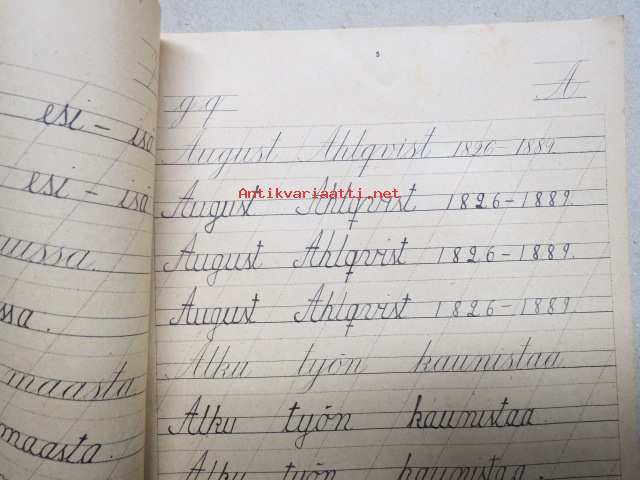 esi – isä
esi – isä
uissa.
ssa.
maasta
maasta.
5
A
g q
August Ahlqvist 1826–1889.
Antikvariaatti.net
August Ahlqvist 1826–1889.
August Ahlqvist 1826–1889.
August Ahlqvist 1826–1889.
Alku työn kaunistaa.
Alku työn kaunistaa.
Alku työn kaunistaa.